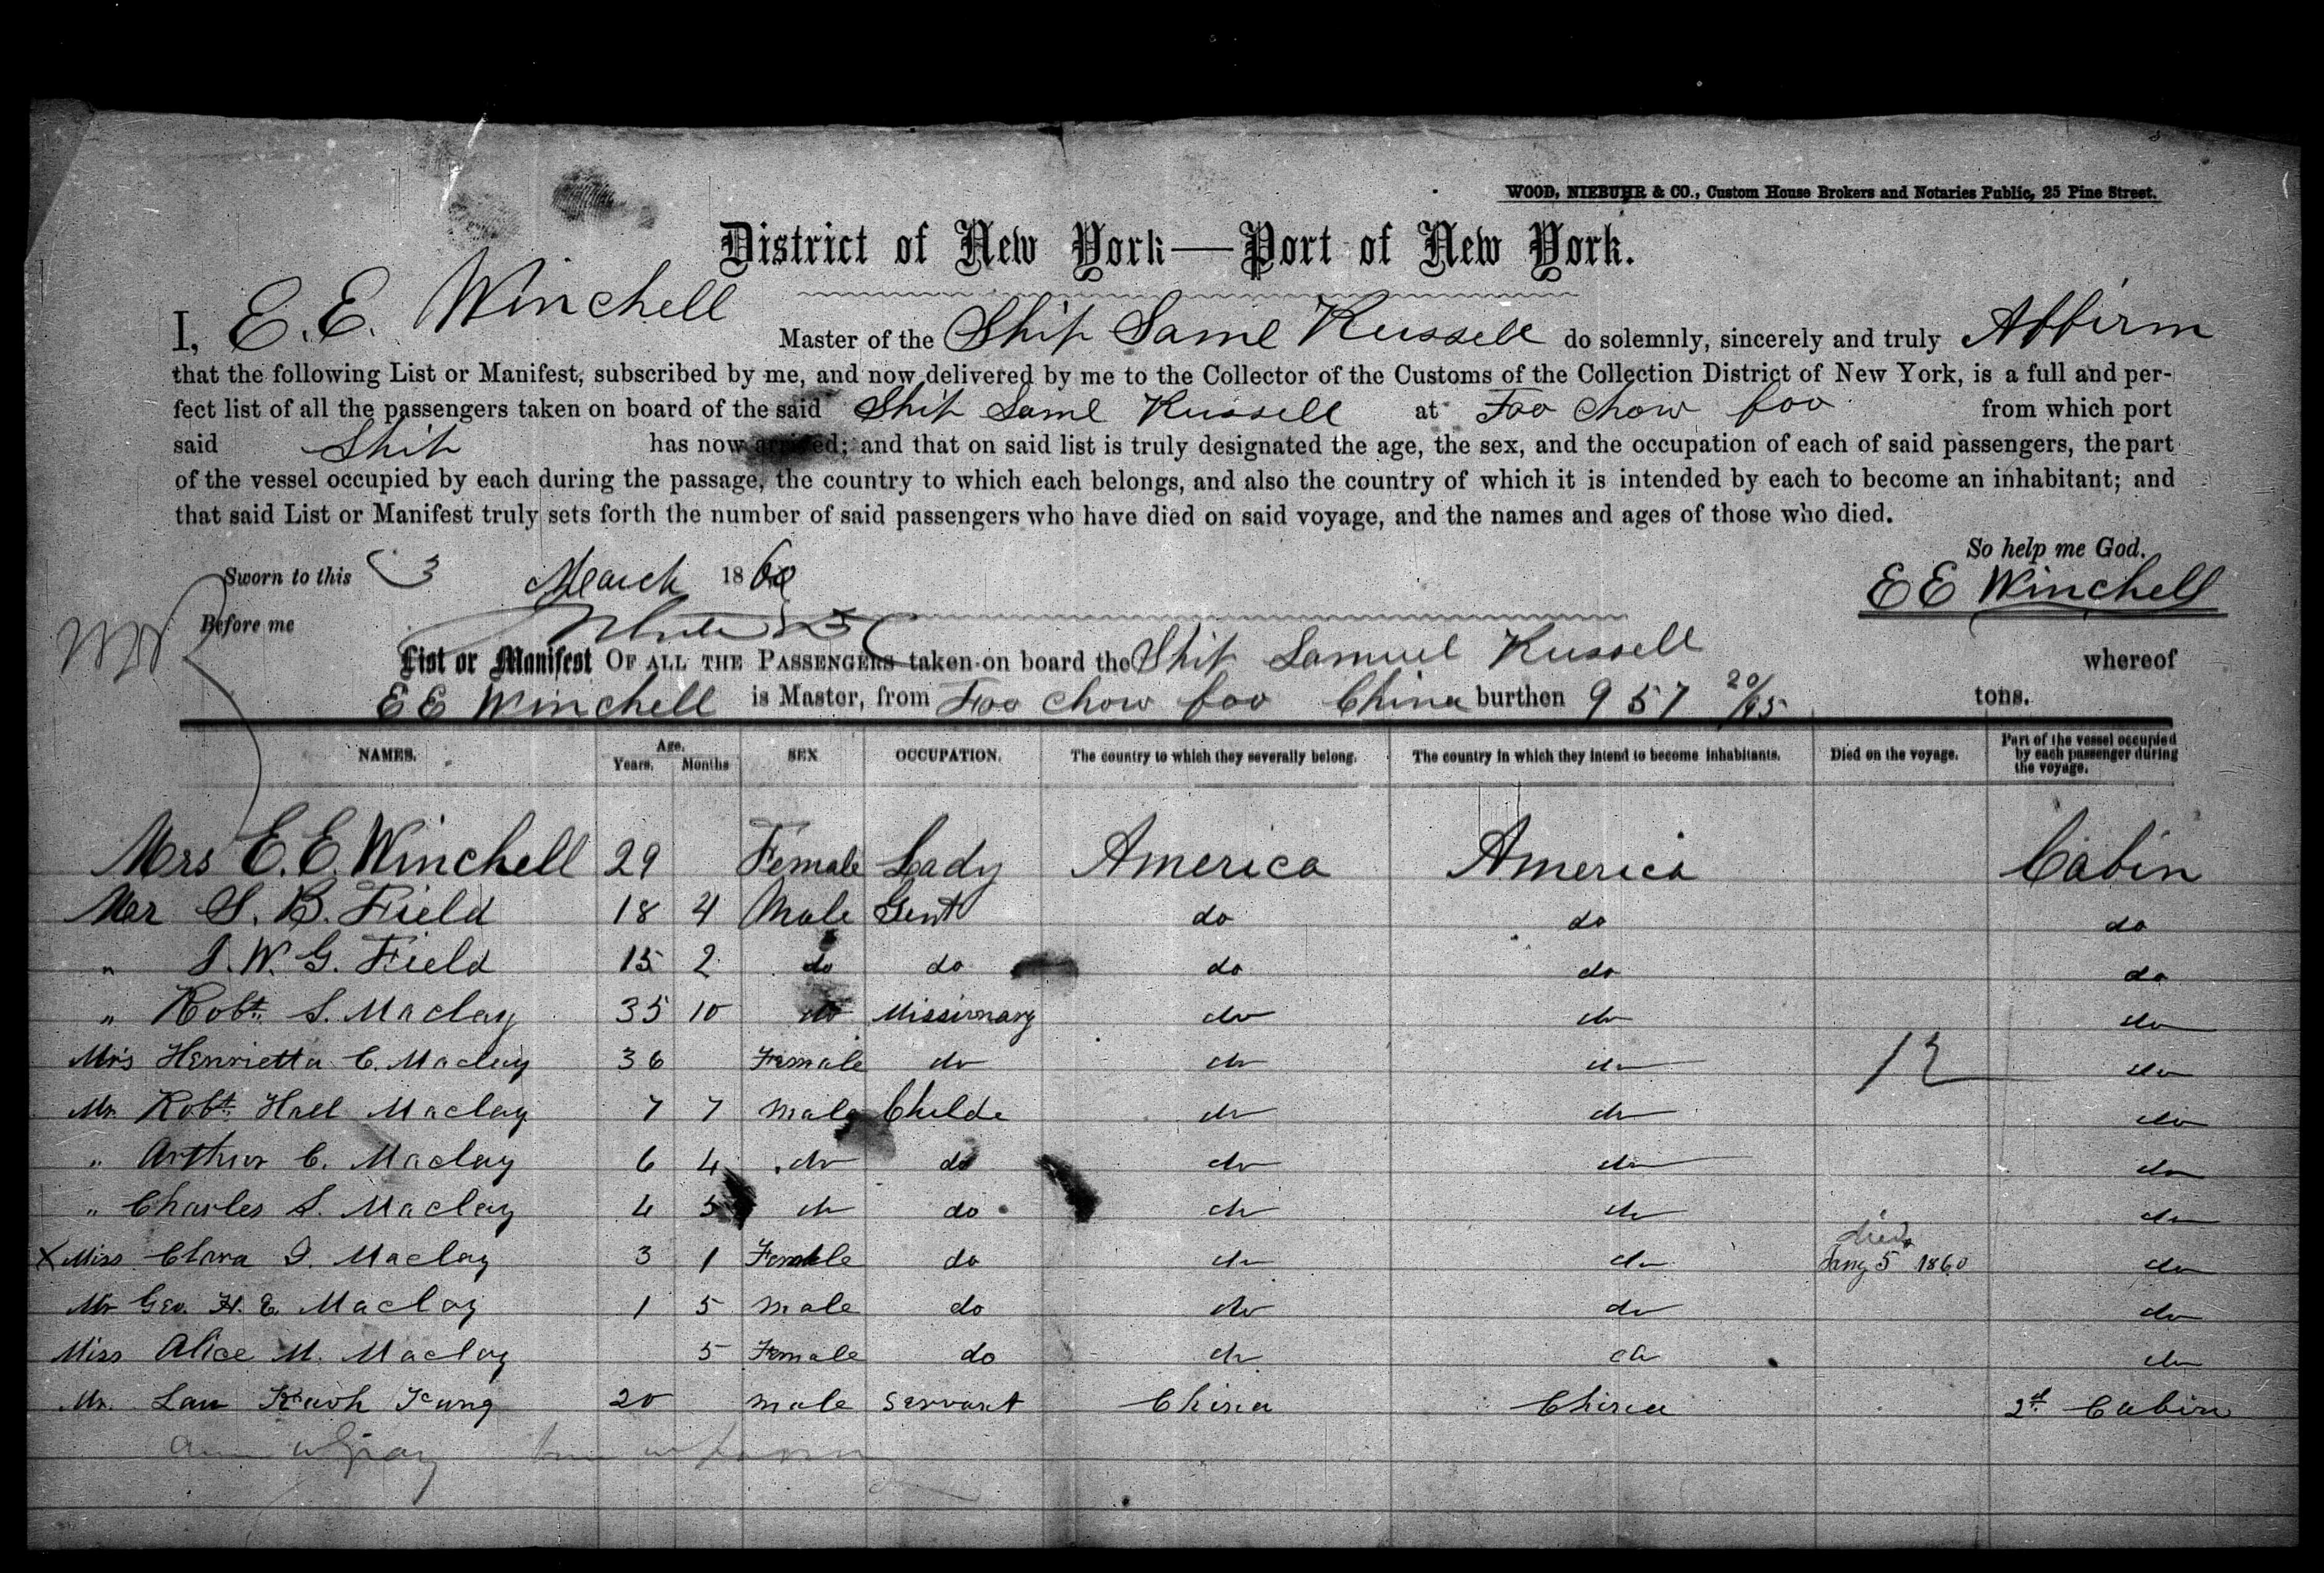 WOOD, NIEBUHR & CO., Custom House Brokers and Notaries Public, 25 Pine Street.
District of New York—Port of New York.
I, E. E. Winchell Master of the Ship Saml Russell do solemnly, sincerely and truly Affirm
that the following List or Manifest, subscribed by me, and now delivered by me to the Collector of the Customs of the Collection District of New York, is a full and per-
fect list of all the passengers taken on board of the said Ship Saml Russell at Foo Chow foo from which port
said Ship has now arrived; and that on said list is truly designated the age, the sex, and the occupation of each of said passengers, the part
of the vessel occupied by each during the passage, the country to which each belongs, and also the country of which it is intended by each to become an inhabitant; and
that said List or Manifest truly sets forth the number of said passengers who have died on said voyage, and the names and ages of those who died.
So help me God.
Sworn to this 3 March 1860
E E Winchell
Before me
List or Manifest OF ALL THE PASSENGERS taken on board the Ship Samuel Russell whereof
E E Winchell is Master, from Foo Chow foo China burthen 957 20/95 tons.
NAMES. Age. Years. Months SEX OCCUPATION. The country to which they severally belong. The country in which they intend to become inhabitants. Died on the voyage. Part of the vessel occupied by each passenger during the voyage.
Mrs E. E. Winchell 29 Female Lady America America Cabin
Mr S. B. Field 18 4 Male Gent do do do
" J. W. G. Field 15 2 do do do do do
" Robt. S. Maclay 35 10 do Missionary do do do
Mrs Henrietta C. Maclay 36 Female do do do 12 do
Mr. Robt. Hall Maclay 7 7 Male Childe do do do
" Arthur C. Maclay 6 4 do do do do do
" Charles S. Maclay 4 5 do do do do do
X Miss Clara I. Maclay 3 1 Female do do do died Jany 5 1860 do
Mr Geo. H. E. Maclay 1 5 Male do do do do
Miss Alice M. Maclay 5 Female do do do do
Mr. Lau Kavh Kung 20 Male Servant China China 2d. Cabin